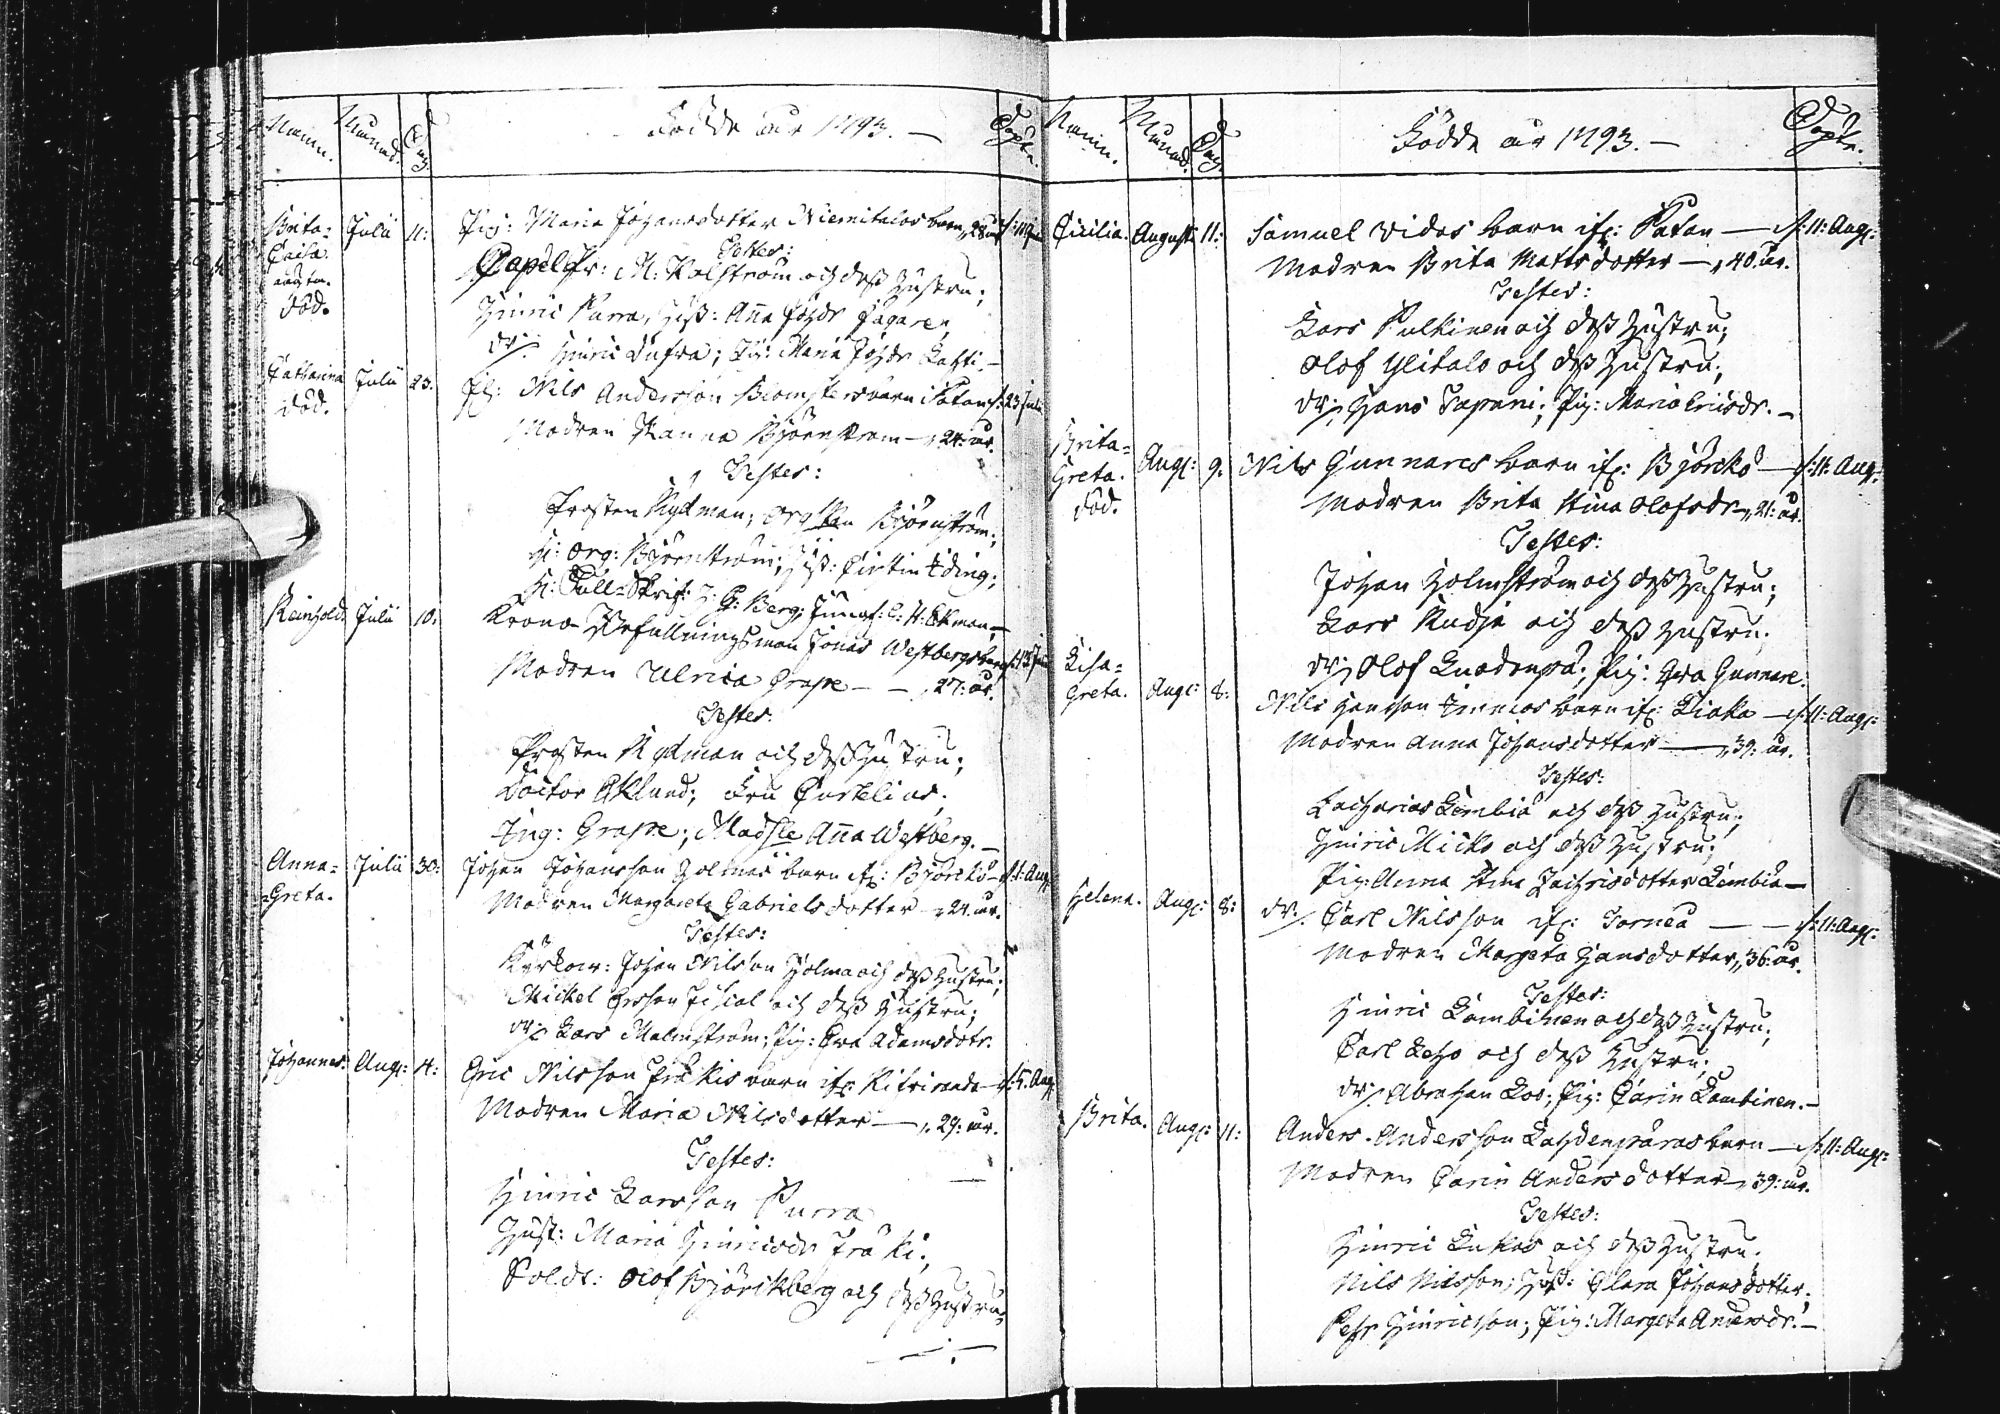 Namn. Månad. Dag. Födde år 1793. — Döpte.
Brita= Julii 11: Pig: Maria Johansdotter Niemitalos barn, 28 år
Caisa
död.
Testes:
Capell Pr: M: Kolström och dess Hustru;
Hinric Purra, Hust: Aña Johsdr
dr: Hinric; Pig: Maria Johsdr
Catharina Julii 23. Nils Andersson barn i Påtan d: 23 Julii
död. Modren Stanna Björnström —, 24: år.
Testes:
Prosten Rydman; Org: Björnström;
H: Org: Björnström; Hust: Cirstin
H: Tull-Skrif: H: G: Berg; Jungf: C: H: Ekman, —
Reinhold. Julii 10: Krono Befallningsman Jonas Westbergs barn
Modren Ulrica Grape — —, 27: år.
Testes:
Prosten Rydman och dess Hustru;
Doctor Eklund; Fru Curtelius;
Ing: Grape; Madslle Aña Westberg. —
Anna= Julii 30: Johan Johansson Holmas barn if: Björckö — d: 1: Aug:
Greta. Modren Margareta Gabrielsdotter —, 24. år.
Testes:
Kyrkow: Johan Nilsson Holma och dess Hustru;
Mickel Ersson och dess Hustru;
dr: Lars Malmström; Pig: Eva Adamsdotr.
Johannes. Aug: 4: Eric Nilsson barn if: — d: 5. Aug:
Modren Maria Nilsdotter —, 29: år.
Testes:
Hinric Larsson Purra
Hust: Maria Hinricsdr
Soldt: Olof Björckberg och dess Hustru;
Namn. Månad. Dag. Födde år 1793. — Döpte.
Cicilia. Augusti 11: Samuel Vidos barn if: Påtan — d: 11: Aug:
Modren Brita Mattsdotter —, 40. år.
Testes:
Lars Pulkinen och dess Hustru;
Olof Ylitalo och dess Hustru;
dr: Hans Tapani; Pig: Maria Ericsdr. —
Brita= Aug: 9. Nils Gunnares barn if: Björckö — d: 11: Aug:
Greta. Modren Brita Stina Olofsdr, 21: år.
död.
Testes:
Johan Holmström och dess Hustru;
Lars Rudja och dess Hustru.
dr: Olof; Pig: Eva Gunnare.
Lisa= Aug: 8: Nils Hansson barn if: — d: 11: Aug:
Greta. Modren Anna Johansdotter —, 39: år.
Testes:
Zacharias Lembiä och dess Hustru;
Hinric Micko och dess Hustru;
Pig: Anna Stina Zachrisdotter Lembiä —
Helena. Aug: 8: dr: Carl Nilsson if: Torneå — — d: 11: Aug:
Modren Margeta Hansdotter, 36: år.
Testes:
Hinric Lambinen och dess Hustru;
Carl Leho och dess Hustru;
dr: Abraham; Pig: Carin Lambinen. —
Brita. Aug: 11: Anders Andersson barn — d: 11: Aug:
Modren Carin Andersdotter, 39: år.
Testes:
Hinric Lukas och dess Hustru.
Nils Nilsson; Hust: Clara Johansdotter;
Pehr Hinricsson; Pig: Margeta Andersdr. —